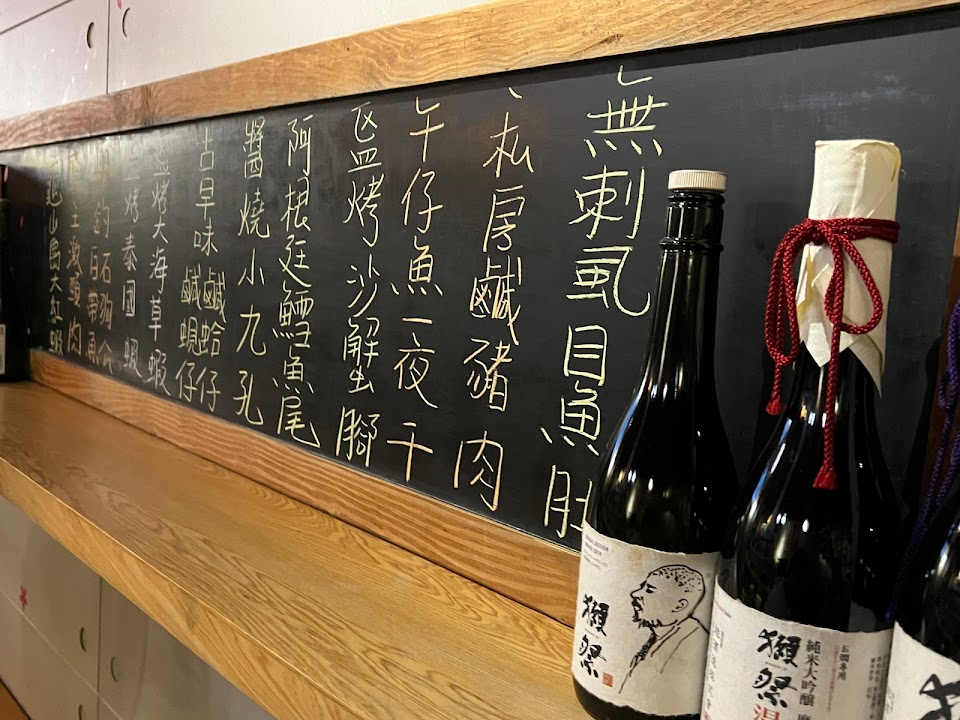 無刺虱目魚肚
私房鹹豬肉
午仔魚一夜干
區皿烤沙蟹腳
阿根廷鱈魚尾
醬燒小九孔
古早味鹹蛤仔
鹹蜆仔
烤大海草蝦
烤泰國蝦
釣石狗公
白帶魚
激頭肉
龜山島大紅蝦
獺祭
獺祭
純米大吟醸
お燗専用